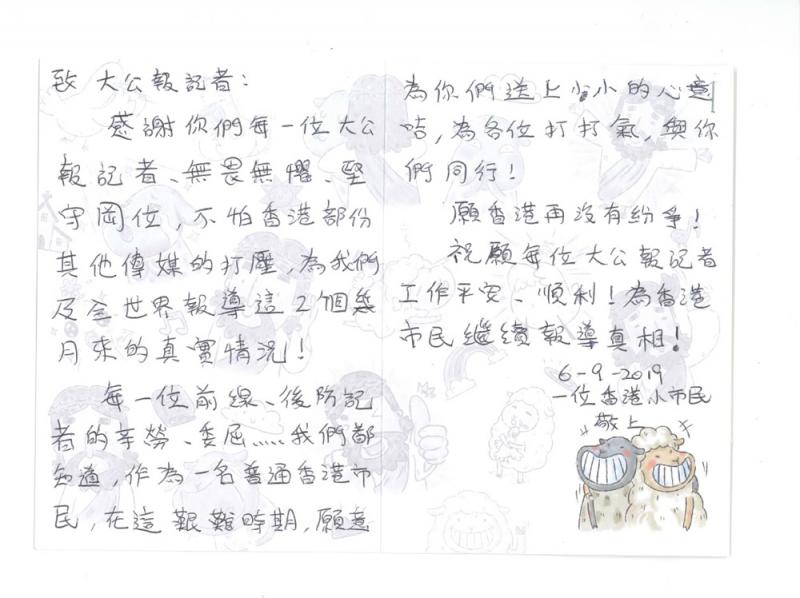 致 大公報記者：
感謝你們每一位大公
報記者、無畏無懼、堅
守岡位，不怕香港部份
其他傳媒的打壓，為我們
及全世界報導這2個幾
月來的真實情況！
每一位前線、後防記
者的辛勞、委屈……我們都
知道，作為一名普通香港市
民，在這艱難時期，願意
為你們送上小小的心意
咭，為各位打打氣，與你
們同行！
願香港再沒有紛爭！
祝願每位大公報記者
工作平安、順利！為香港
市民繼續報導真相！
6-9-2019
一位香港小市民
敬上